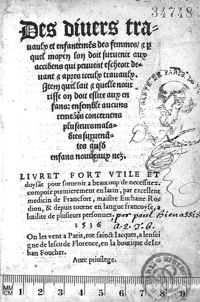 34748
Des divers tra-
vaulx et enfantemẽs des femmes, et p
quel moyen lon doit survenir aux
accidens qui peuvent escheoir de-
vant et apres iceulx travaulx.
Item quel laict et quelle nour-
risse on doit eslire aux en-
fans: ensemble aucuns
remedes concernens
plusieurs mala-
dies survenã-
tes ausd
enfans nouveaux nez.
LIVRET FORT VTILE ET
duysãt pour subvenir a beaucoup de necessitez.
composé premierement en latin, par excellent
medicin de Francfort, maistre Euchaire Ro-
dion, & depuis tourne en langue francoyse, a
lutilite de plusieurs personnes. par paul Bienassis
1536
On les vent a Paris, rue sainct Iacques, a lensei-
gne de lescu de Florence, en la boutique de Ie-
han Foucher.
Auec priuilege.
MM
CM 1 2 3 4 5 6 7 8 9